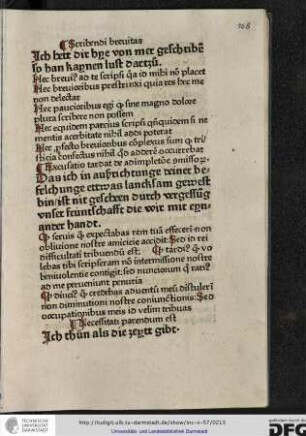 168
Scribendi breuitas
Ich hett dir bye von mer geschribē
so han kaynen lust dartzů.
Hec breui ad te scripsi qͣ id mihi nō placet
Hec breuioribus prestrinxi quia res hec me
non delectat
Hec paucioribus egi qͣ sine magno dolore
plura scribere non possem
Hec equidem parcius scripsi qm̄quidem si ne
mentis acerbitate nihil addi poterat
Hec ꝓfecto breuioribus cōplexus sum qͣ tri/
sticia confectus nihil qd adderē occurrebat
Excusatio tardat de adimpletōe ꝓmissoꝝ
Das ich in außrichtunge deiner be/
felchunge ettwas lancksam gewest
bin/ist nit gescheen durch vergessūg
vnser fruntschafft die wir mit eyn/
ander handt.
ꝙ serius qͣ expectabas rem tuā effecerī non
obliuione nostre amicicie accidit Sed id rei
difficultati tribuendū est. ꝙ tardiꝰ qͣ vo
lebas tibi scripseram nō intermissione nostre
beniuolentie contigit: sed nunciorum qͥ rari
ad me perueniunt penuria
ꝙ diuciꝰ qͣ credebas aduentū meū distulerī
non diminutioni nostre coniunctionis Sed
occupationibus meis id velim tribuas
Necessitati parendum est
Ich thůn als die zeytt gibt.
TECHNISCHE UNIVERSITÄT DARMSTADT
http://tudigit.ulb.tu-darmstadt.de/show/inc-ii-57/0213
Universitäts- und Landesbibliothek Darmstadt
gefördert durch die
DFG